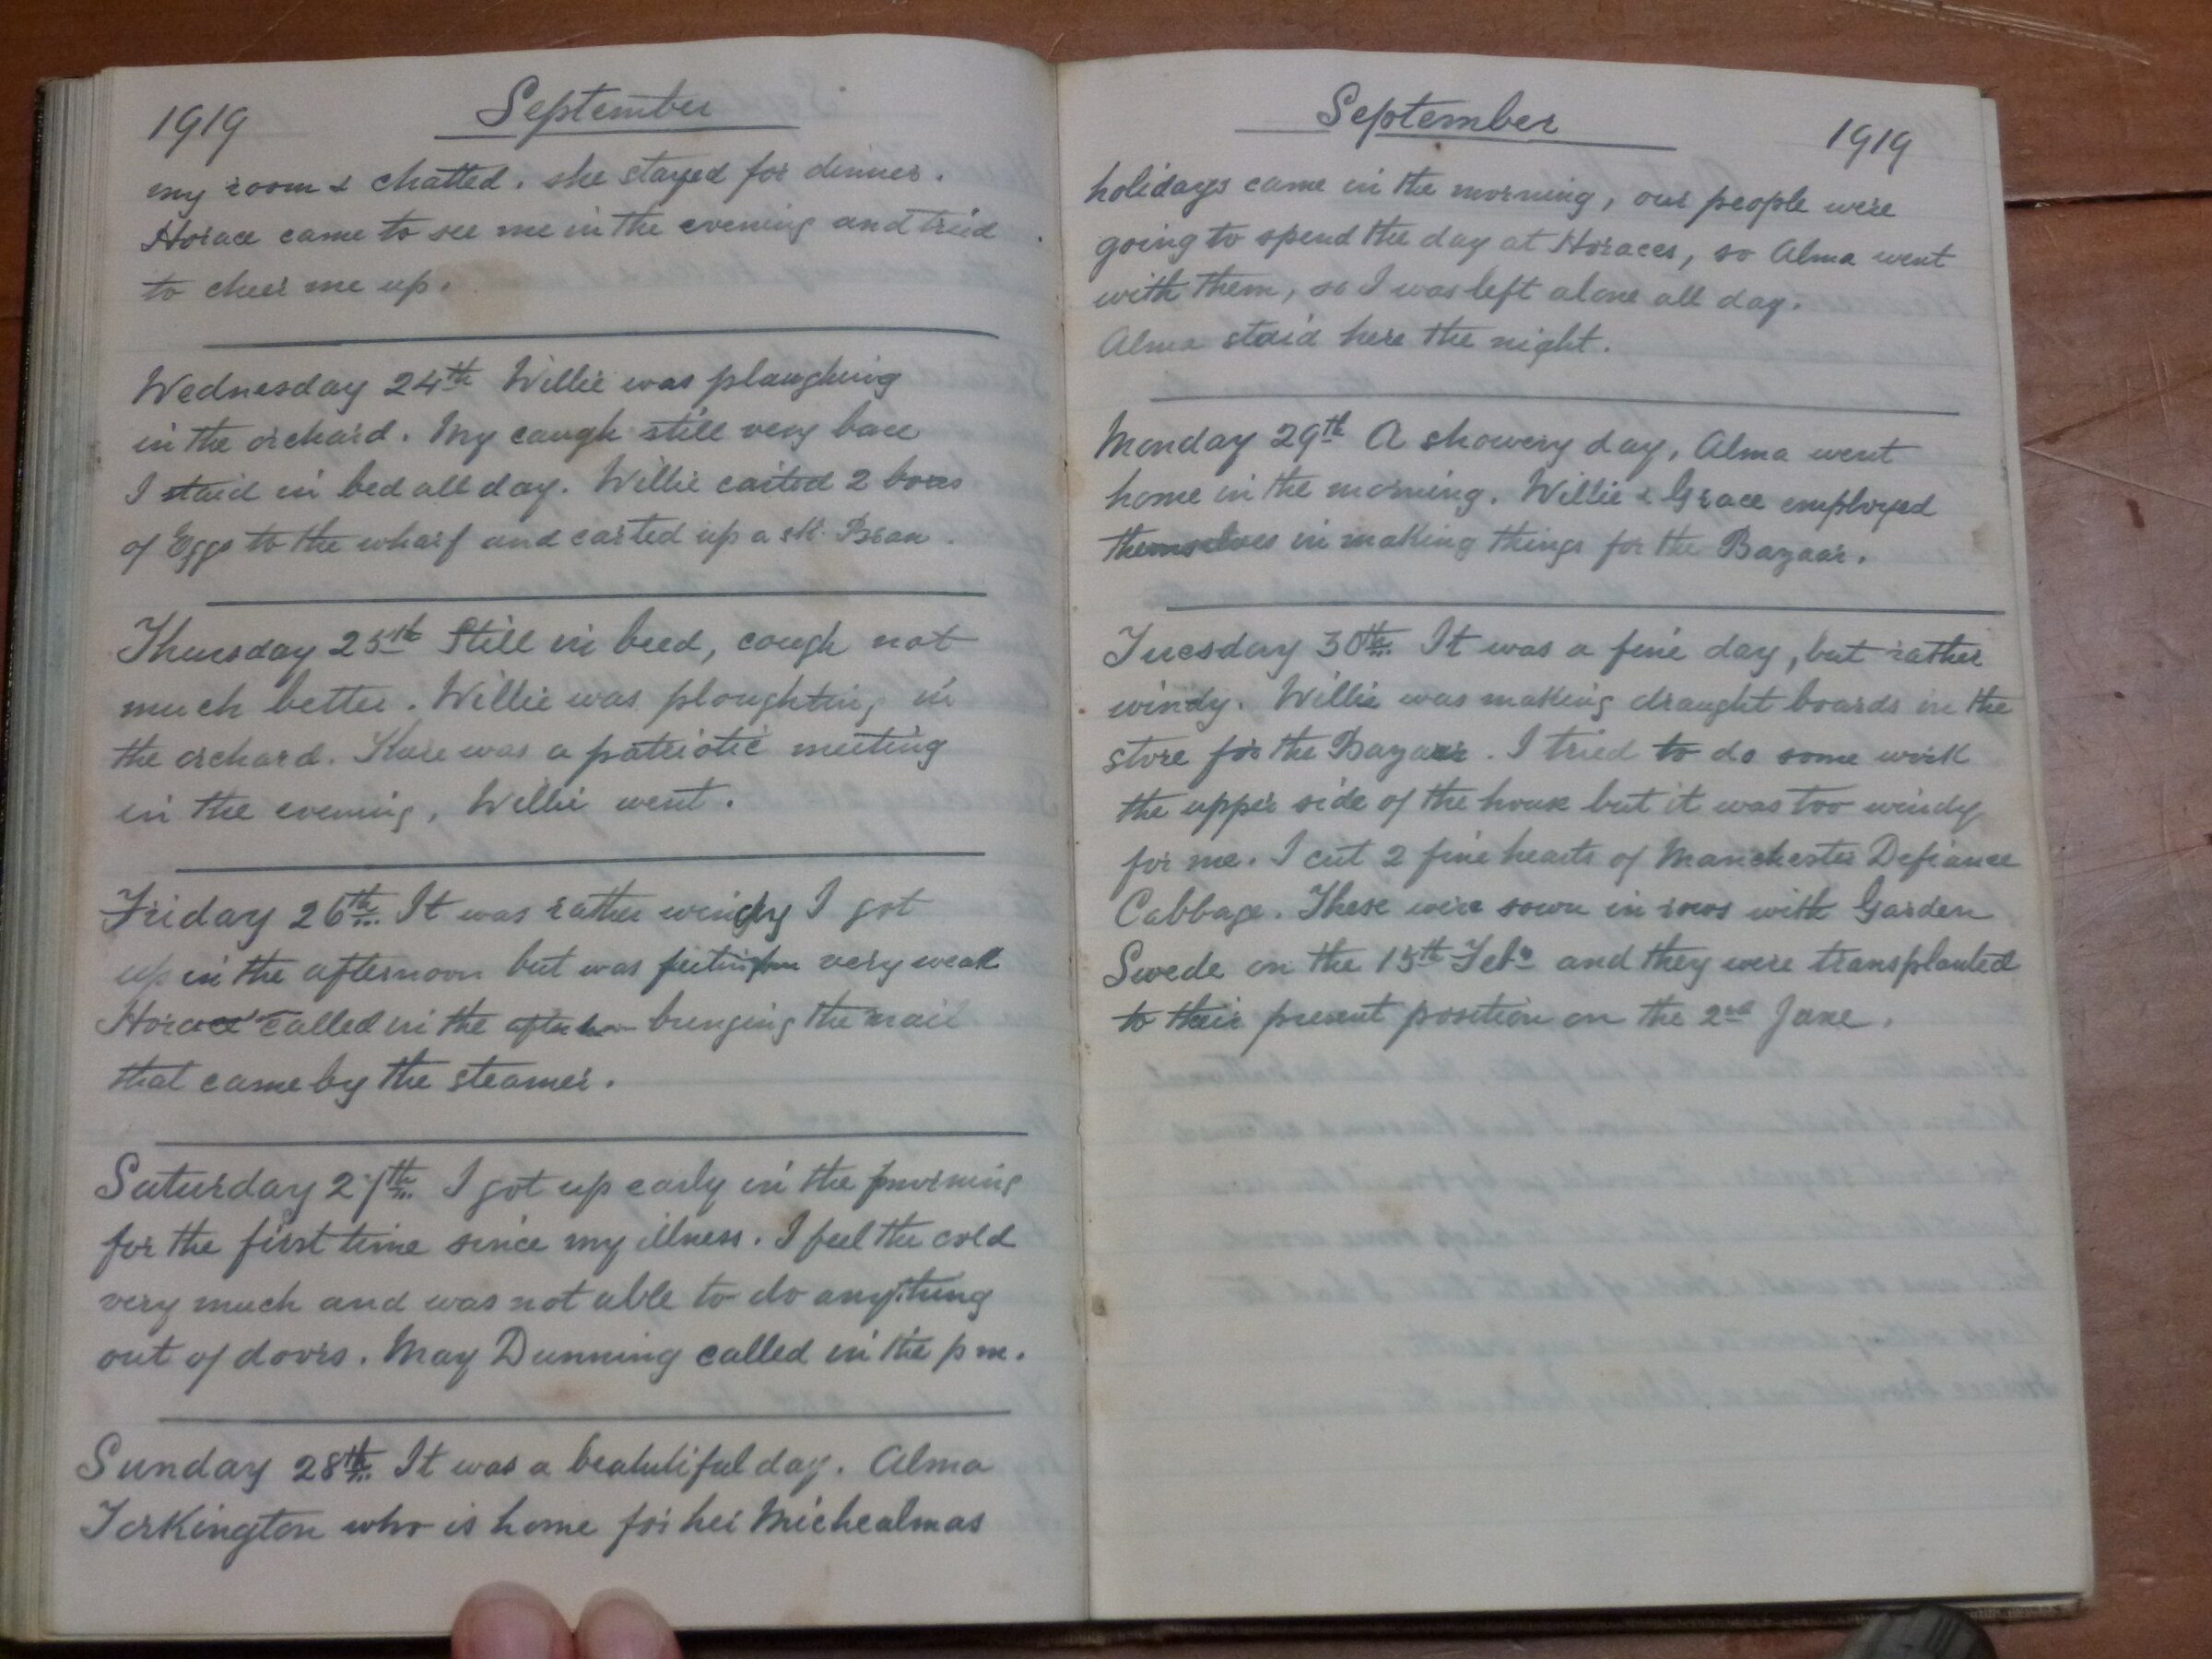 1919 September
my room & chatted. she stayed for dinner.
Horace came to see me in the evening and tried
to cheer me up.
Wednesday 24th Willie was ploughing
in the orchard. My cough still very bad
I staid in bed all day. Willie carted 2 boxes
of Eggs to the wharf and carted up a sk. Bran.
Thursday 25th Still in bed, cough not
much better. Willie was ploughting in
the orchard. There was a patriotic meeting
in the evening, Willie went.
Friday 26th It was rather windy I got
up in the afternoon but was very weak
Horace called in the bringing the mail
that came by the steamer.
Saturday 27th I got up early in the morning
for the first time since my illness. I feel the cold
very much and was not able to do anything
out of doors. May Dunning called in the pm.
Sunday 28th It was a beatutiful day. Alma
Torkington who is home for her Michealmas
September 1919
holidays came in the morning, our people were
going to spend the day at Horaces, so Alma went
with them, so I was left alone all day.
Alma staid here the night.
Monday 29th A showery day, Alma went
home in the morning. Willie & Grace employed
themselves in making things for the Bazaar.
Tuesday 30th It was a fine day, but rather
windy. Willie was making draught boards in the
store for the Bazaar. I tried to do some work
the upper side of the house but it was too windy
for me. I cut 2 fine hearts of Manchester Defiance
Cabbage. These were sown in rows with Garden
Swede on the 15th Feby and they were transplanted
to their present position on the 2nd June.